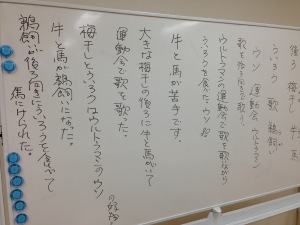 後ろ 梅干し 牛 馬
ういろう 歌 鵜飼い
ウソ 運動会 ウルトラマン
歌を
ウルトラマンの運動会で歌を歌ながら
ういろうを食べたウソ
牛と馬が苦手です。
大きな梅干しの後ろに牛と馬がいて
運動会で歌を歌った。
梅干しとういろうはウルトラマンのウソ
の好物
牛と馬が鵜飼いになった。
鵜飼が後ろ向きにういろうを食べて
馬にけられた。